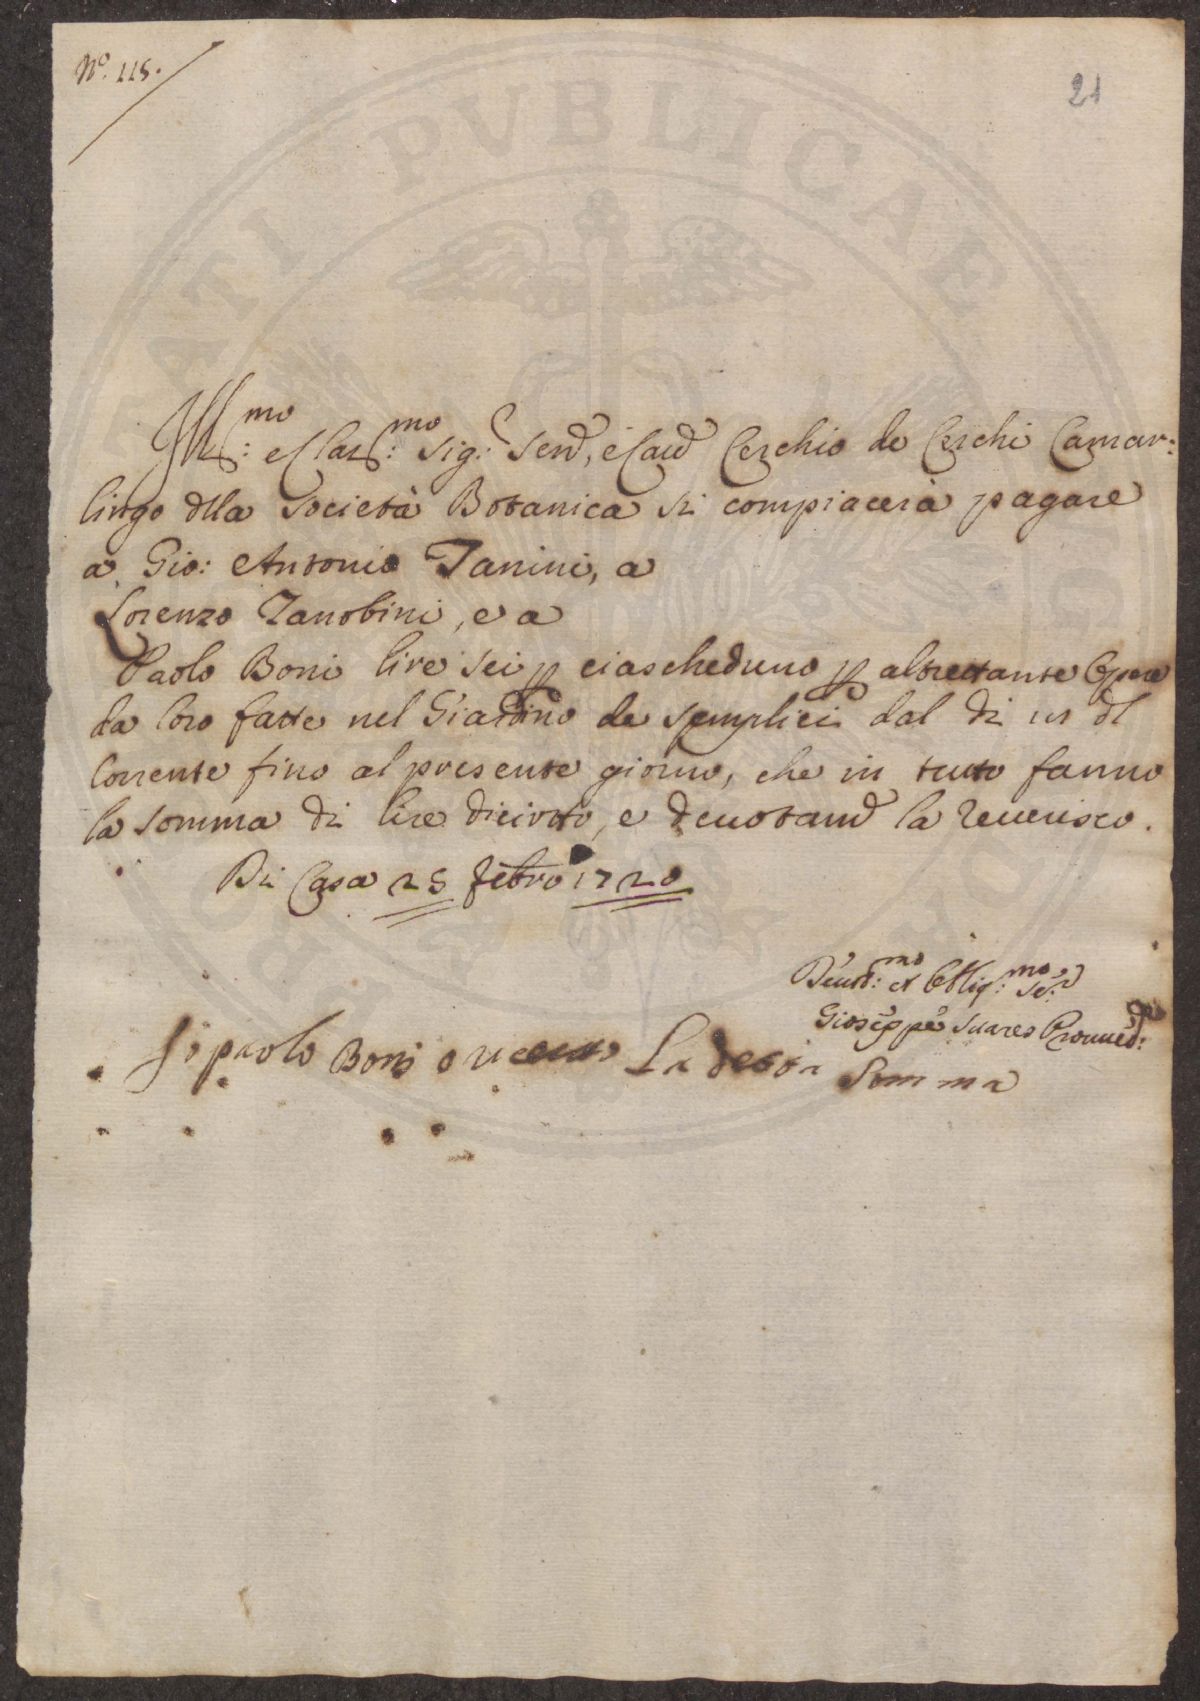 N.º 115.
21
PVBLICAE
Ill:mo e Clar:mo Sig:r Send, e Caud Cerchio de Cerchi Camar:
lingo dlla Società Botanica si compiacerà pagare
a Gio: Antonio Zanini, a
Lorenzo Zanobini, e a
Paolo Boni lire sei p ciascheduno p altrettante Opere
da loro fatte nel Giardino de Semplici dal di dl
Corrente fino al presente giorno, che in tutto fanno
la somma di lire diciotto, e devotamd la reverisco.
Di Casa 25 Febro 1720
Devot:mo et Oblig:mo Se:r
Gioseppe Suares Provved:
Io paolo Boni o riceuto La detta Somma